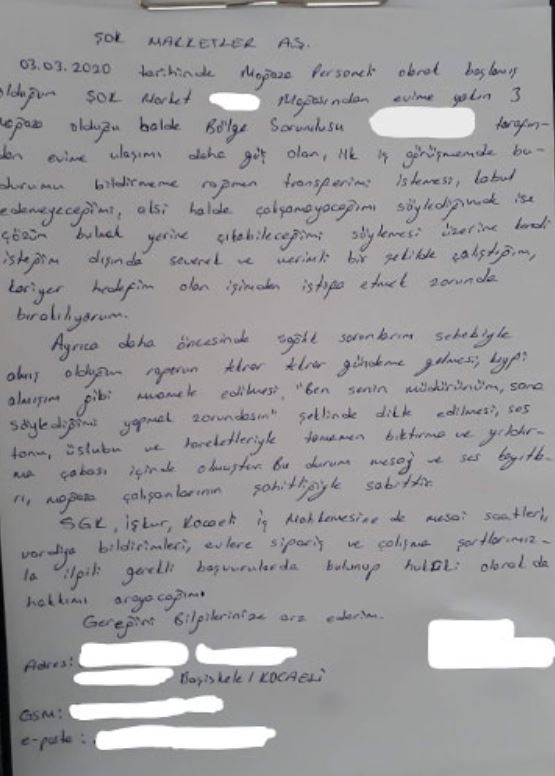 ŞOK MARKETLER AŞ.
03.03.2020 tarihinde Mağaza Personeli olarak başlamış
olduğum ŞOK Market Mağazasından evime yakın 3
mağaza olduğu halde Bölge Sorumlusu tarafın-
dan evime ulaşımı daha güç olan, ilk iş görüşmemde bu-
durumu bildirmeme rağmen transferimi istemesi, kabul
edemeyeceğimi, aksi halde çalışamayacağımı söylediğimde ise
çözüm bulmak yerine çıkabileceğimi söylemesi üzerine kendi
isteğim dışında severek ve verimli bir şekilde çalıştığım,
kariyer hedefim olan işimden istifa etmek zorunda
bırakılıyorum.
Ayrıca daha öncesinde sağlık sorunlarım sebebiyle
almış olduğum raporun tekrar tekrar gündeme gelmesi, keyfi
almışım gibi muamele edilmesi, "Ben senin müdürünüm, sana
söylediğimi yapmak zorundasın" şeklinde dikte edilmesi, ses
tonu, üslubu ve hareketleriyle tamamen bıktırma ve yıldır-
ma çabası içinde olmuştur. Bu durum mesaj ve ses kayıtla-
rı, mağaza çalışanlarının şahitliğiyle sabittir.
SGK, İşkur, Kocaeli İş Mahkemesine de mesai saatleri,
vardiya bildirimleri, evlere sipariş ve çalışma şartlarımız-
la ilgili gerekli başvurularda bulunup hukuki olarak da
hakkımı arayacağım.
Gereğini Bilgilerinize arz ederim.
Adres:
Başiskele / KOCAELİ
GSM:
e-posta: